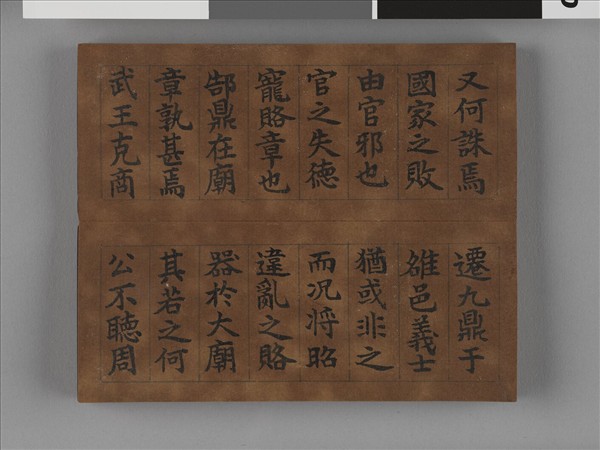 又何誅焉
國家之敗
由官邪也
官之失徳
寵賂章也
郜鼎在廟
章孰甚焉
武王克商
遷九鼎于
雒邑義士
猶或非之
而况将昭
違亂之賂
器於大廟
其若之何
公不聽周